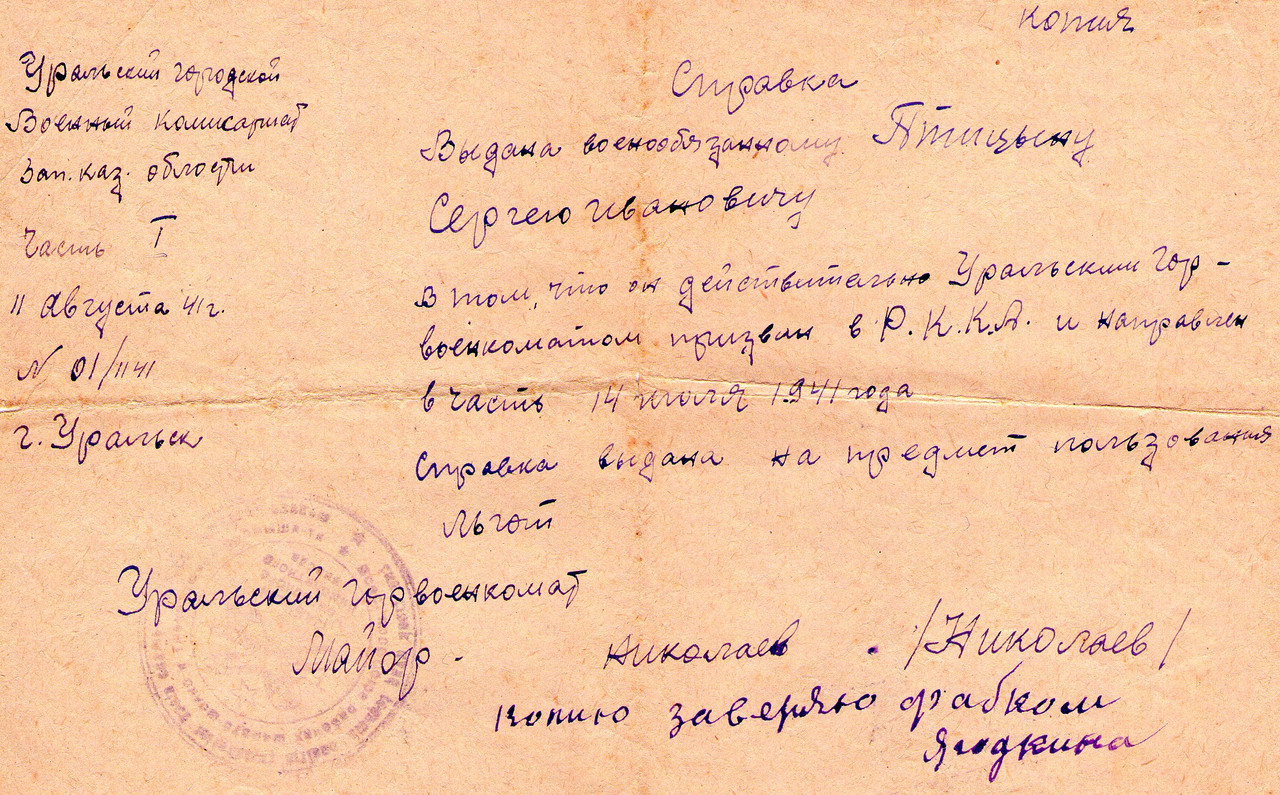 копия
Уральский городской
Военный комисариат
Зап. каз. области
Часть I
11 Августа 41 г.
N 01/1141
г. Уральск
Справка
Выдана военообязанному Птицыну
Сергею Ивановичу
в том, что он действительно Уральским Гор-
военкоматом призван в Р.К.К.А. и направлен
в часть 14 июля 1941 года
Справка выдана на предмет пользования
льгот
Уральский Горвоенкомат
Майор - Николаев . /Николаев/
Копию заверяю фабком
Ягодкина